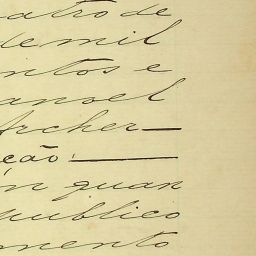 atro de
de mil
ntos e
anoel
Archer—
ção:—
in quan
publico
mento